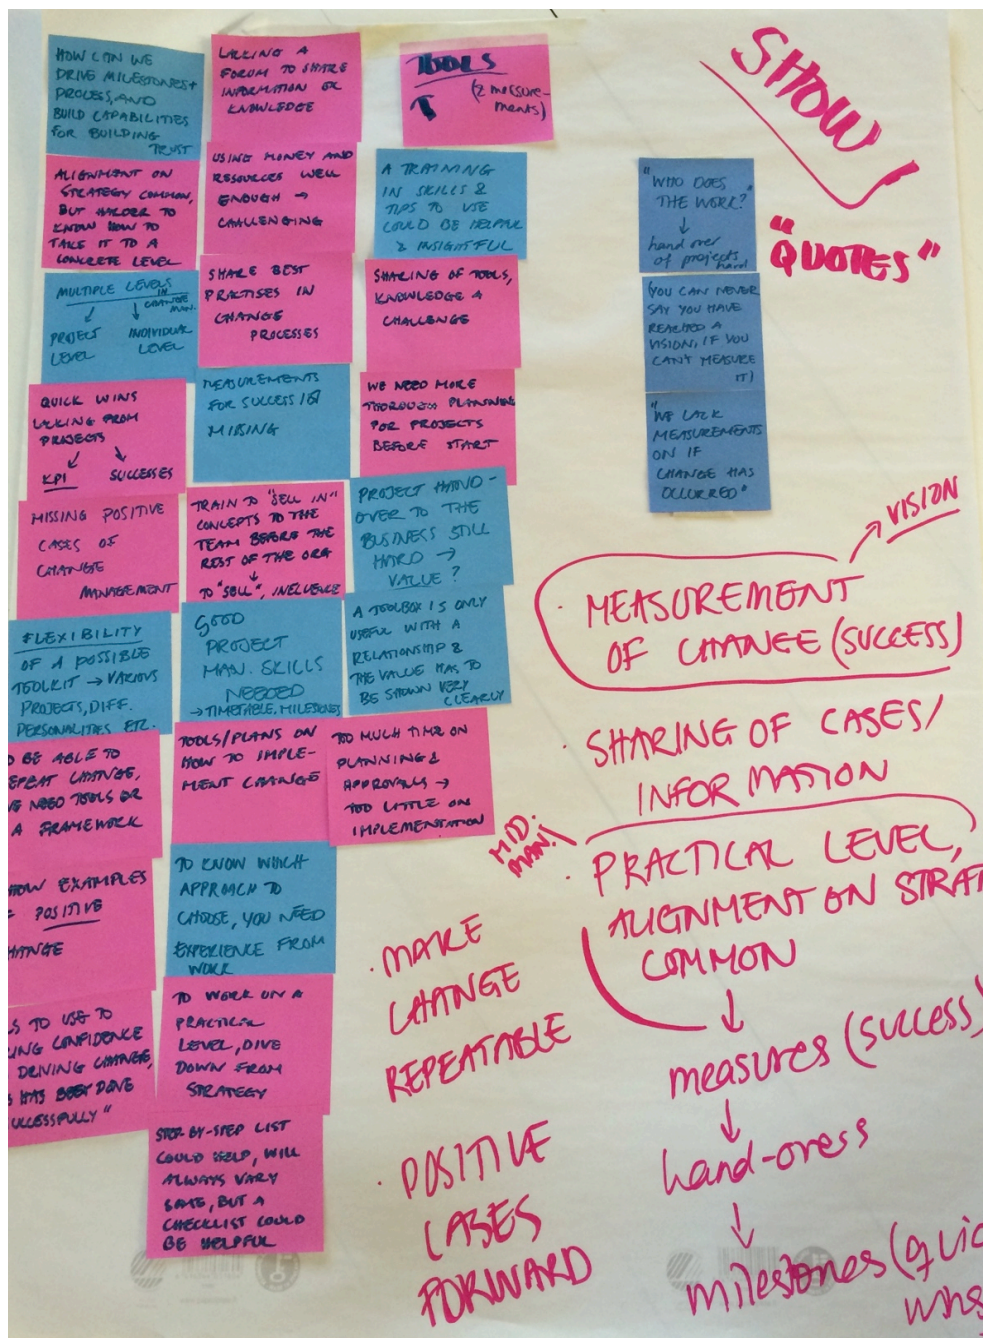 HOW CAN WE
DRIVE MILESTONES +
PROCESS, AND
BUILD CAPABILITIES
FOR BUILDING
TRUST
ALIGNMENT ON
STRATEGY COMMON,
BUT HARDER TO
KNOW HOW TO
TAKE IT TO A
CONCRETE LEVEL
MULTIPLE LEVELS
IN
CHANGE
MAN.
PROJECT
LEVEL
INDIVIDUAL
LEVEL
QUICK WINS
LACKING FROM
PROJECTS
KPI
SUCCESSES
MISSING POSITIVE
CASES OF
CHANGE
MANAGEMENT
FLEXIBILITY
OF A POSSIBLE
TOOLKIT → VARIOUS
PROJECTS, DIFF.
PERSONALITIES ETC.
O BE ABLE TO
EPEAT CHANGE,
E NEED TOOLS OR
A FRAMEWORK
HOW EXAMPLES
F POSITIVE
HANGE
S TO USE TO
ING CONFIDENCE
DRIVING CHANGE,
S HAS BEEN DONE
UCCESSFULLY"
LACKING A
FORUM TO SHARE
INFORMATION OR
KNOWLEDGE
USING MONEY AND
RESOURCES WELL
ENOUGH →
CHALLENGING
SHARE BEST
PRACTISES IN
CHANGE
PROCESSES
MEASUREMENTS
FOR SUCCESS
MISSING
TRAIN TO "SELL IN"
CONCEPTS TO THE
TEAM BEFORE THE
REST OF THE ORG
↓
TO "SELL", INFLUENCE
GOOD
PROJECT
MAN. SKILLS
NEEDED
→ TIMETABLE, MILESTONES
TOOLS/PLANS ON
HOW TO IMPLE-
MENT CHANGE
TO KNOW WHICH
APPROACH TO
CHOOSE, YOU NEED
EXPERIENCE FROM
WORK
TO WORK ON A
PRACTICAL
LEVEL, DIVE
DOWN FROM
STRATEGY
STEP-BY-STEP LIST
COULD HELP, WILL
ALWAYS VARY
SOME, BUT A
CHECKLIST COULD
BE HELPFUL
TOOLS
(2 measure-
ments)
A TRAINING
IN SKILLS &
TIPS TO USE
COULD BE HELPFUL
& INSIGHTFUL
SHARING OF TOOLS,
KNOWLEDGE A
CHALLENGE
WE NEED MORE
THOROUGH PLANNING
FOR PROJECTS
BEFORE START
PROJECT HAND-
OVER TO THE
BUSINESS STILL
HARD →
VALUE?
A TOOLBOX IS ONLY
USEFUL WITH A
RELATIONSHIP &
THE VALUE HAS TO
BE SHOWN VERY
CLEARLY
TOO MUCH TIME ON
PLANNING &
APPROVALS →
TOO LITTLE ON
IMPLEMENTATION
SHOW!
"QUOTES"
"WHO DOES
THE WORK?"
↓
hand over
of projects
hard
(YOU CAN NEVER
SAY YOU HAVE
REACHED A
VISION, IF YOU
CAN'T MEASURE
IT)
"WE LACK
MEASUREMENTS
ON IF
CHANGE HAS
OCCURRED"
VISION
· MEASUREMENT
OF CHANGE (SUCCESS)
· SHARING OF CASES/
INFORMATION
MID.
MAN!
· PRACTICAL LEVEL,
ALIGNMENT ON STRAT
COMMON
↓
measures (success)
↓
hand-overs
↓
milestones (quic
wins
· MAKE
CHANGE
REPEATABLE
· POSITIVE
CASES
FORWARD